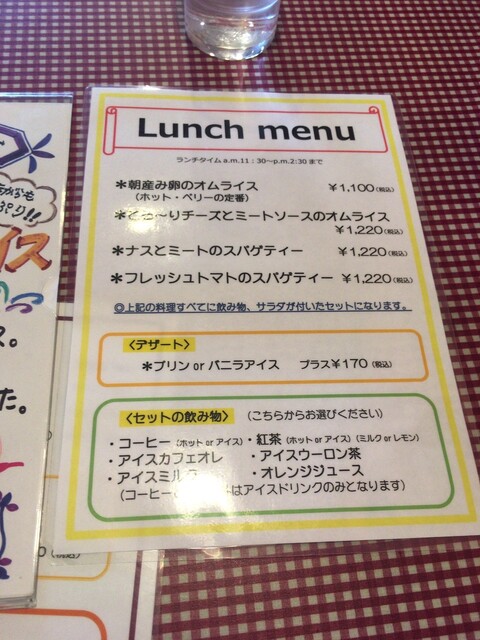 Lunch menu
ランチタイム a.m.11：30～p.m.2:30 まで
＊朝産み卵のオムライス ￥1,100(税込)
（ホット・ベリーの定番）
＊とろ～りチーズとミートソースのオムライス
￥1,220(税込)
＊ナスとミートのスパゲティー ￥1,220(税込)
＊フレッシュトマトのスパゲティー ￥1,220(税込)
◎上記の料理すべてに飲み物、サラダが付いたセットになります。
〈デザート〉
＊プリン or バニラアイス プラス￥170(税込)
〈セットの飲み物〉 （こちらからお選びください）
・コーヒー（ホット or アイス）・紅茶（ホット or アイス）（ミルク or レモン）
・アイスカフェオレ ・アイスウーロン茶
・アイスミルク ・オレンジジュース
（コーヒー はアイスドリンクのみとなります）
イス
た。